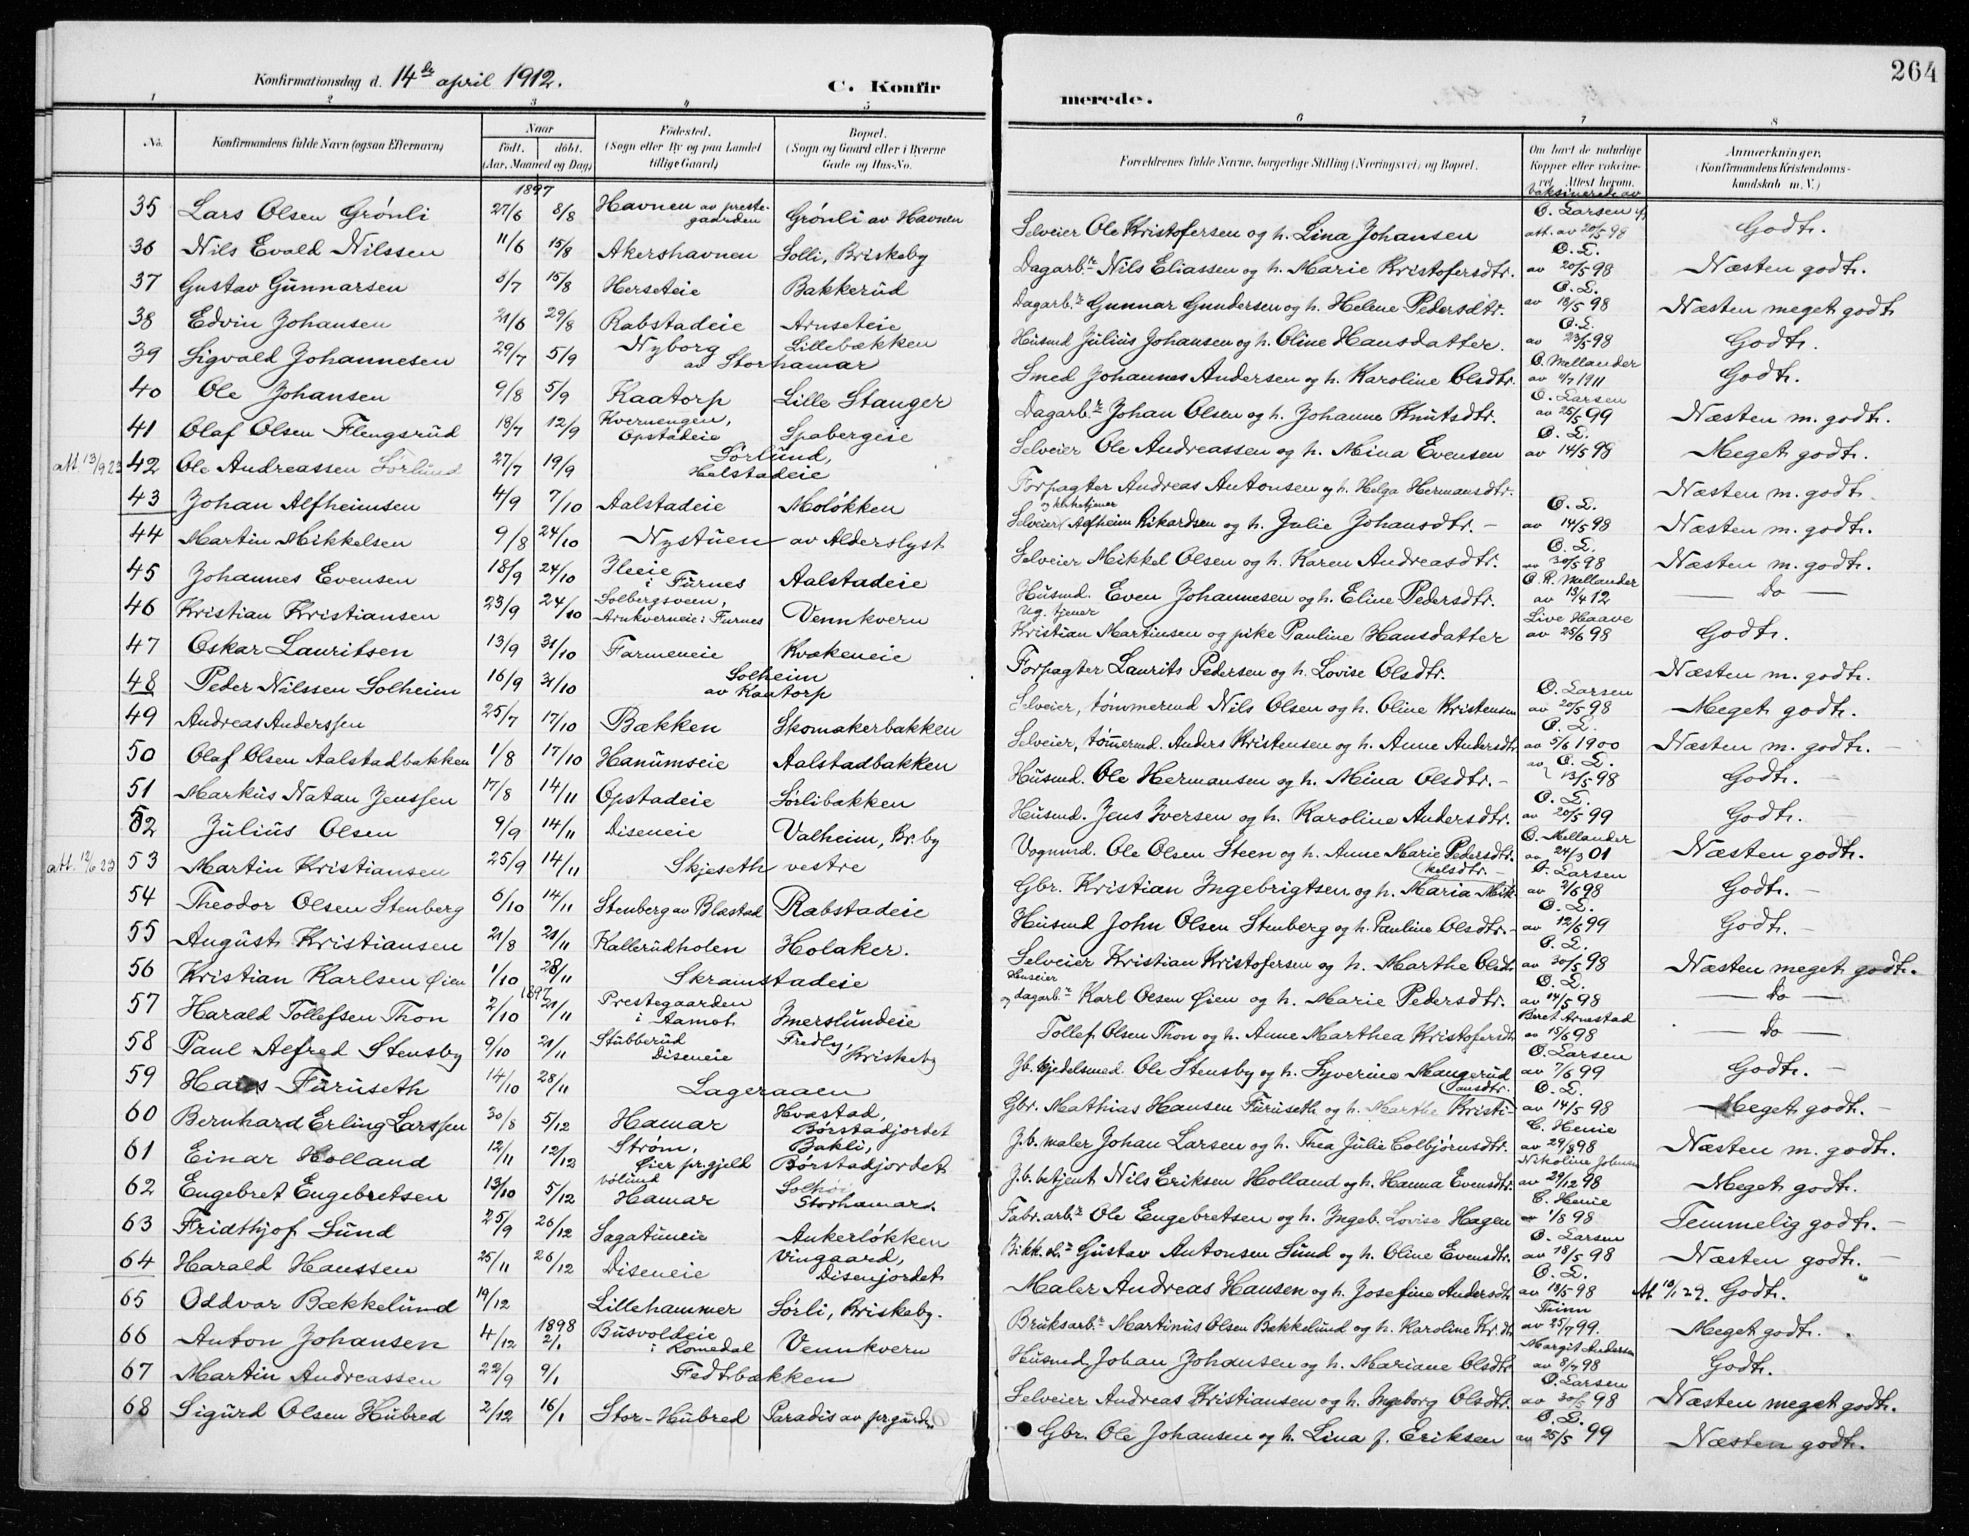 264
Konfirmationsdag d. 14de april 1912.
C. Konfirmerede.
1 2 3 4 5 6 7 8
No. | Konfirmandens fulde Navn (ogsaa Efternavn) | Naar født. døbt. (Aar, Maaned og Dag) | Fødested. (Sogn eller By og paa Landet tillige Gaard) | Bopæl. (Sogn og Gaard eller i Byerne Gade og Hus-No. | Forældrenes fulde Navne, borgerlige Stilling (Næringsvei) og Bopæl. | Om havt de naturlige Kopper eller vakcineret. Attest herom. | Anmærkninger. (Konfirmandens Kristendomskundskab m. V.)
1897 Vaksinerede av
35 Lars Olsen Grónli 27/6 8/8 Havnen av prestegaarden Grónli av Havnen Selveier Ole Kristofersen og h. Lina Johansen O. Larsen att. av 20/5 98 Godt.
36 Nils Evald Nilssen 11/6 15/8 Akershavnen Solli, Briskeby Dagarbr. Nils Eliassen og h. Marie Kristofersdtr. O. L. av 20/5 98 Næsten godt.
37 Gustav Gunnarsen 8/7 15/8 Herseteie Bakkerud Dagarbr. Gunnar Gundersen og h. Helene Pedersdtr. O. L. av 18/5 98 Næsten meget godt
38 Edvin Johansen 21/6 29/8 Rabstadeie Arnseteie Husmd Julius Johansen og h. Oline Hansdatter. O. L. av 23/5 98 Godt.
39 Sigvald Johannesen 29/7 5/9 Nyborg av Storhamar Lillebækken Smed Johannes Andersen og h. Karoline Olsdtr. O. Mellander av 4/7 1911 Godt.
40 Ole Johansen 9/8 5/9 Kaatorp Lille Stanger Dagarbr. Johan Olsen og h. Johanne Knutsdtr. O. Larsen av 25/5 99 Næsten m. godt.
41 Olaf Olsen Flengsrud 18/7 12/9 Kvernengen, Opstadeie Spabergeie Selveier Ole Andreassen og h. Mina Evensen O. L. av 14/5 98 Meget godt.
att. 13/9 23 42 Ole Andreassen Sørlund 27/7 19/9 Sørlund, Helstadeie Forpagter Andreas Antonsen og h. Helga Hermansdtr. Næsten m. godt.
43 Johan Alfheimsen 4/9 7/10 Aalstadeie Moløkken Selveier og kirketjener Alfheim Rikardsen og h. Julie Johansdtr. O. L. av 14/5 98 Næsten m. godt.
44 Martin Mikkelsen 9/8 24/10 Nystuen av Alderslyst Selveier Mikkel Olsen og h. Karen Andreasdtr. O. L. av 30/5 98 Næsten m. godt.
45 Johannes Evensen 18/9 24/10 Ileeie i Furnes Aalstadeie Husmd. Even Johannesen og h. Eline Pedersdtr. O. R. Mellander av 13/4 12 Do
46 Kristian Kristiansen 23/9 24/10 Solbergsveen, Arnkverneie i Furnes Vennkvern Ug. tjener Kristian Martinsen og pike Pauline Hansdatter Live Haave av 25/6 98 Godt.
47 Oskar Lauritsen 13/9 31/10 Farmeneie Kvækeneie Forpagter Laurits Pedersen og h. Lovise Olsdtr. Næsten m. godt.
48 Peder Nilssen Solheim 16/9 31/10 Solheim av Kaatorp Selveier, tømmermd Nils Olsen og h. Oline Kristensen O. Larsen av 20/5 98 Meget godt.
49 Andreas Anderssen 25/7 17/10 Bækken Skomakerbakken Selveier, tømmermd. Anders Kristensen og h. Anne Andersdtr O. L. av 5/6 1900 Næsten m. godt.
50 Olaf Olsen Aalstadbakken 1/8 17/10 Hanumseie Aalstadbakken Husmd. Ole Hermansen og h. Mina Olsdtr. O. L. av 13/5 98 Godt.
51 Markus Natan Jenssen 17/8 14/11 Opstadeie Sørlibakken Husmd. Jens Iversen og h. Karoline Andersdtr. O. L. av 20/5 99 Godt.
52 Julius Olsen 9/9 14/11 Diseneie Valheim, Br.by Vognmd. Ole Olsen Steen og h. Anne Marie Pedersdtr. O. Mellander av 24/3 01 Næsten godt.
att. 12/6 23 53 Martin Kristiansen 25/9 14/11 Skjeseth vestre Gbr. Kristian Ingebrigtsen og h. Maria Mikkelsdtr. O. Larsen av 2/6 98 Godt.
54 Theodor Olsen Stenberg 6/10 14/11 Stenberg av Blæstad Rabstadeie Husmd John Olsen Stenberg og h. Pauline Olsdtr. O. L. av 12/6 99 Godt.
55 August Kristiansen 21/8 21/11 Kallerudholen Holaker. Selveier Kristian Kristofersen og h. Marthe Olsdtr O. L. av 30/5 98 Næsten meget godt.
56 Kristian Karlsen Øien 1/10 28/11 Skramstadeie Huseier og dagarbr. Karl Olsen Øien og h. Marie Pedersdtr. O. L. av 14/5 98 Do
1897
57 Harald Tollefsen Thon 2/10 21/11 Prestegaarden i Aamot Imerslundeie Tollef Olsen Thon og h. Anne Marthea Kristofersdtr Beret Arnestad av 15/6 98 Do
58 Paul Alfred Stensby 9/10 21/11 Stubberud Diseneie Fredly, Briskeby Jb. kjedelsmed Ole Stensby og h. Syverine Mangerud O. Larsen av 7/6 99 Godt.
59 Hans Furuseth 14/10 28/11 Lageraaen Gbr. Mathias Hansen Furuseth og h. Marthe Kristiansdtr. O. L. av 14/5 98 Meget godt.
60 Bernhard Erling Larssen 30/8 5/12 Hamar Hvastad, Børstadjordet J.b. maler Johan Larsen og h. Thea Julie Colbjørnsdtr. C. Henie av 29/8 98 Næsten m. godt.
61 Einar Holland 12/11 12/12 Strøm, Øier pr.gjeld Bakli, Børstadjordet J.b. betjent Nils Eriksen Holland og h. Hanna Evensdtr. Nikoline Johnsen av 29/12 98 Meget godt.
62 Engebret Engebretsen 13/10 5/12 Hamar Solhøi Storhamar. Fabr.arbr. Ole Engebretsen og h. Ingeb. Lovise Hagen C. Henie 1/8 98 Temmelig godt.
63 Fridthjof Lund 25/9 26/12 Sagatuneie Ankerløkken Gustav Antonsen Lund og h. Oline Evensdtr. O. Larsen av 18/5 98 Næsten godt.
64 Harald Hanssen 25/11 26/12 Diseneie Vingaard, Disenjordet Maler Andreas Hansen og h. Josefine Andersdtr O. L. av 13/5 98 At 10/1 29. Godt.
65 Oddvar Bækkelund 19/12 Lillehammer Sørli, Briskeby. Bruksarbr. Martinus Olsen Bækkelund og h. Karoline Kr.dtr Thinn av 25/7 99. Meget godt.
1898
66 Anton Johansen 4/12 2/1 Busvoldeie i Romedal Vennkvern Husmd. Johan Johansen og h. Mariane Olsdtr. Margit Andersen av 8/7 98 Godt.
67 Martin Andreassen 22/9 9/1 Fedtbækken Selveier Andreas Kristiansen og h. Ingeborg Olsdtr. O. Larsen av 30/5 98 Næsten meget godt.
68 Sigurd Olsen Hubred 2/12 16/1 Stor-Hubred Paradis av pr.gården Gbr. Ole Johansen og h. Lina f. Eriksen O. L. av 25/5 99 Næsten godt.